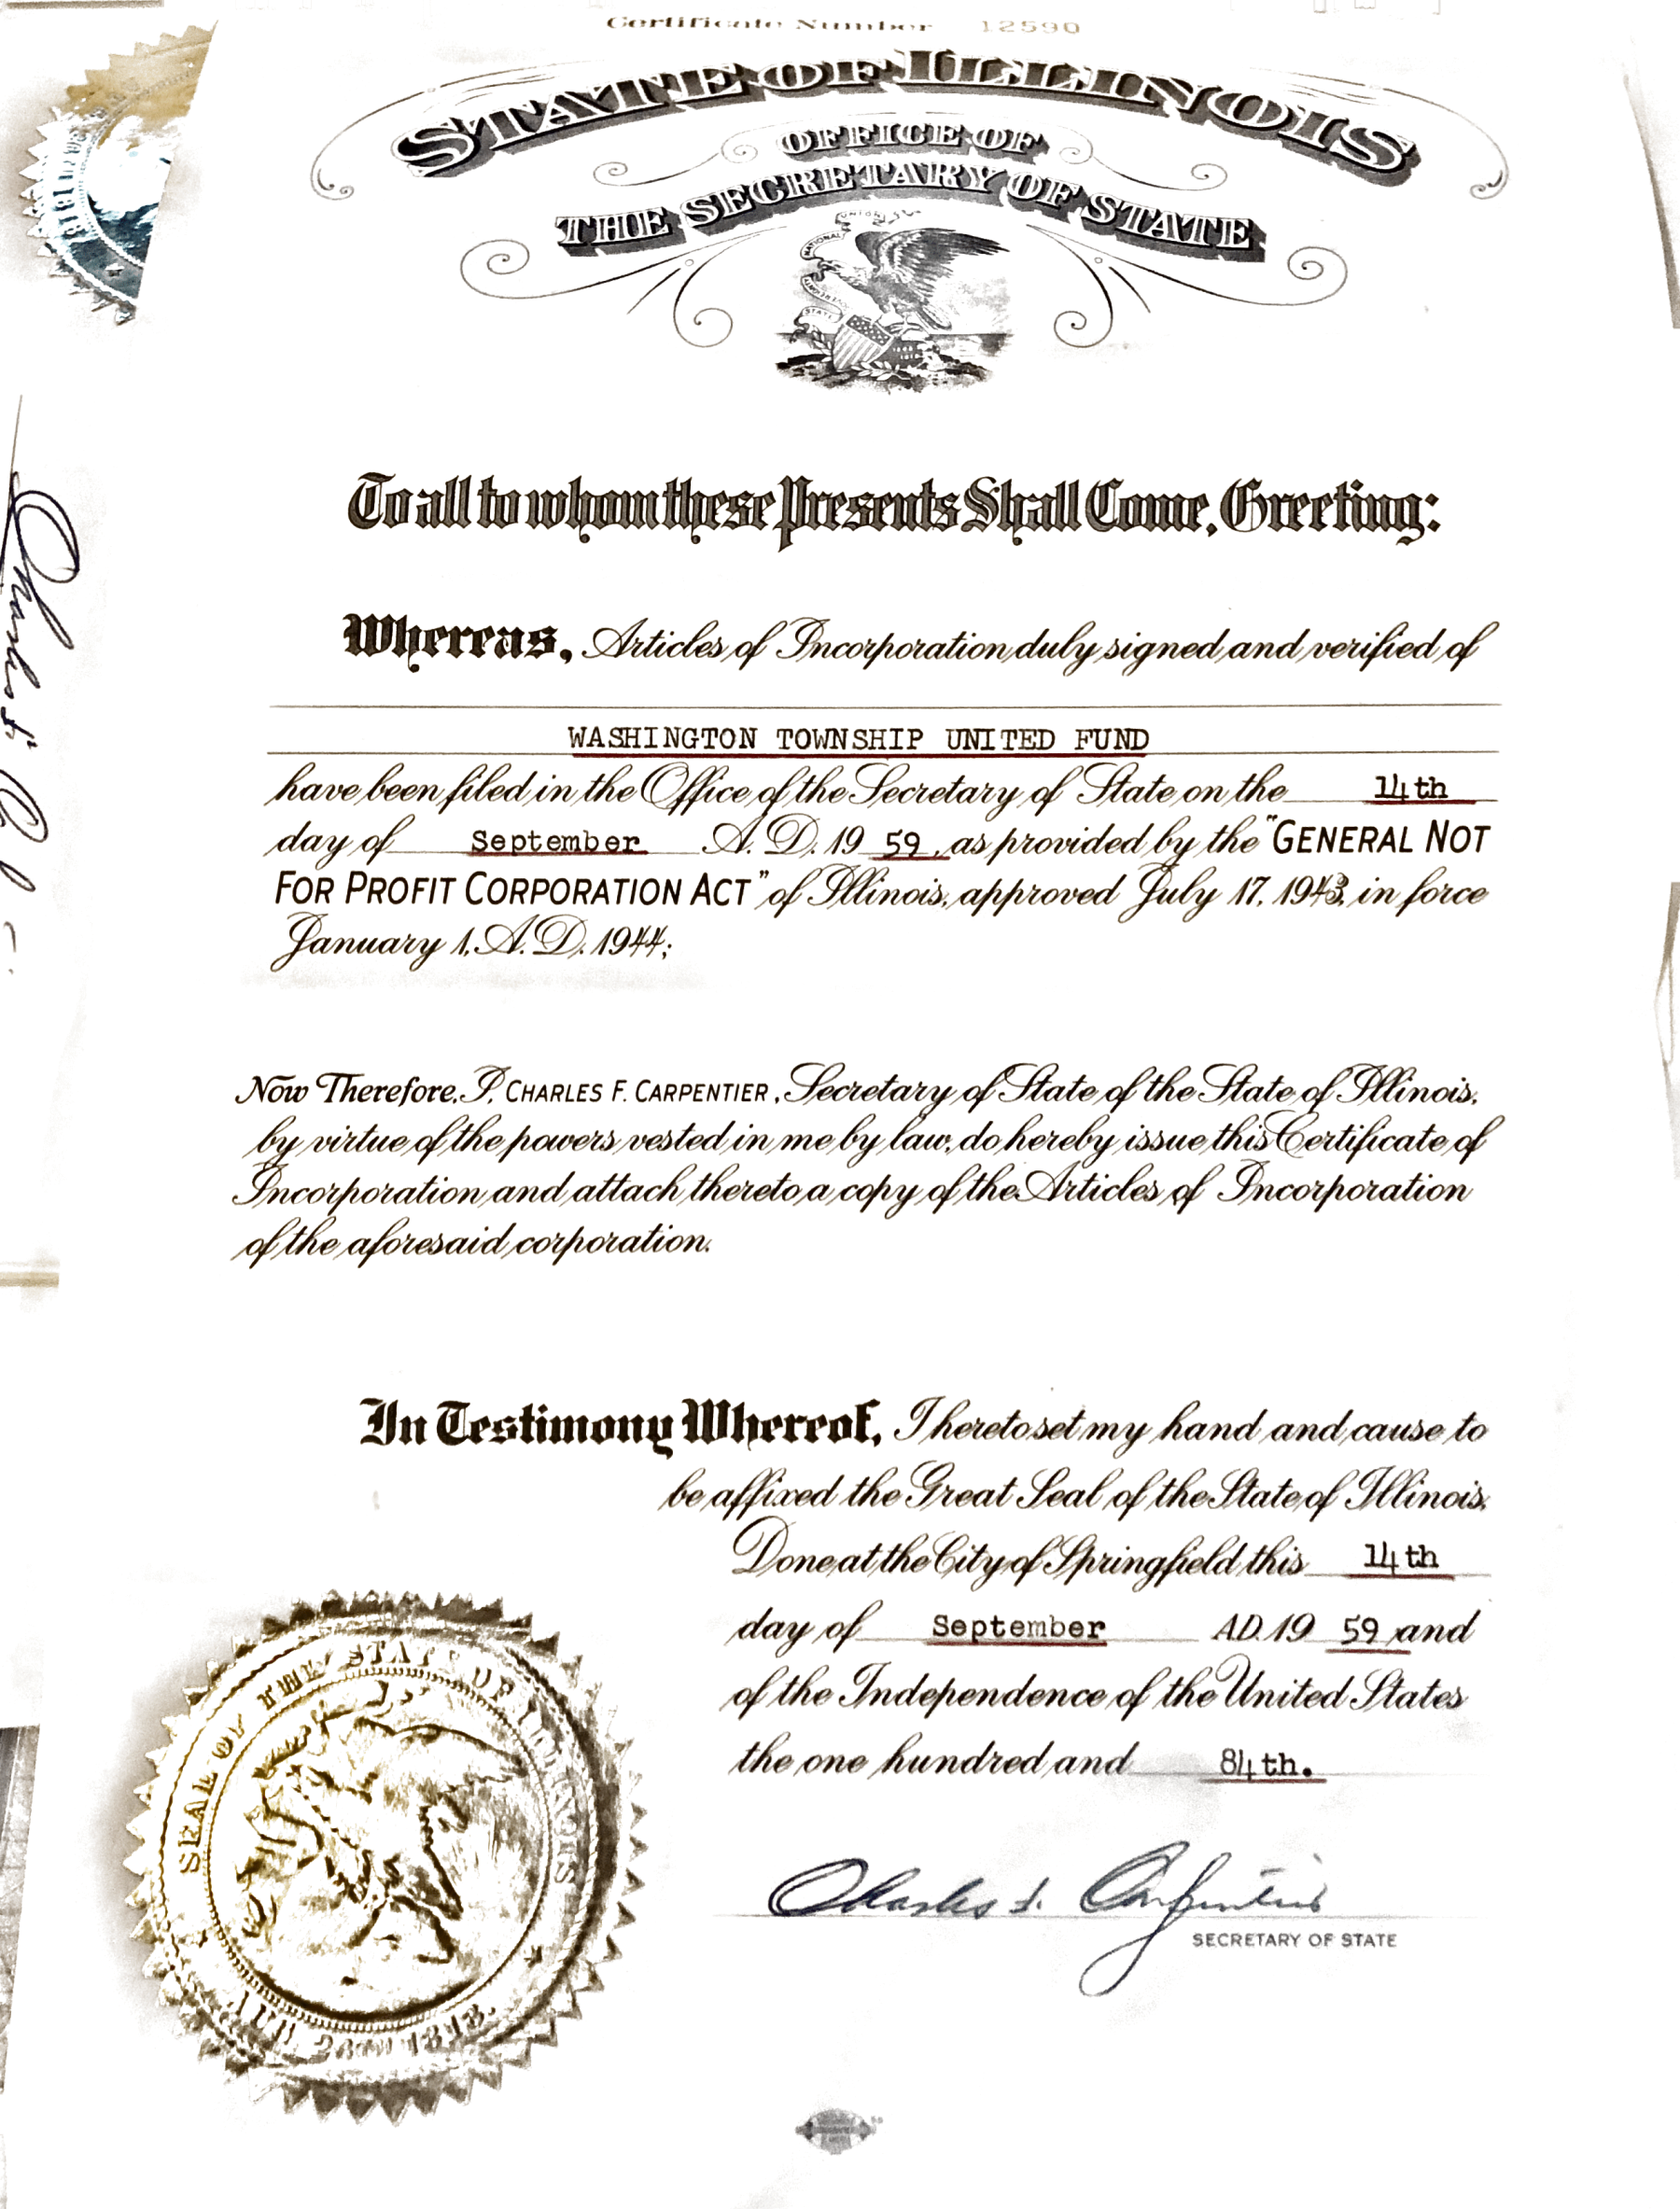 Certificate Number 12590
STATE OF ILLINOIS
OFFICE OF
THE SECRETARY OF STATE
To all to whom these Presents Shall Come, Greeting:
Whereas, Articles of Incorporation duly signed and verified of
WASHINGTON TOWNSHIP UNITED FUND
have been filed in the Office of the Secretary of State on the 14th
day of September A.D. 19 59, as provided by the "GENERAL NOT
FOR PROFIT CORPORATION ACT" of Illinois, approved July 17, 1943, in force
January 1, A.D. 1944;
Now Therefore, I, CHARLES F. CARPENTIER, Secretary of State of the State of Illinois,
by virtue of the powers vested in me by law, do hereby issue this Certificate of
Incorporation and attach thereto a copy of the Articles of Incorporation
of the aforesaid corporation.
In Testimony Whereof, I hereto set my hand and cause to
be affixed the Great Seal of the State of Illinois,
Done at the City of Springfield this 14th
day of September A.D. 19 59 and
of the Independence of the United States
the one hundred and 84th.
Charles F. Carpentier
SECRETARY OF STATE
SEAL OF THE STATE OF ILLINOIS
AUG. 26TH 1818